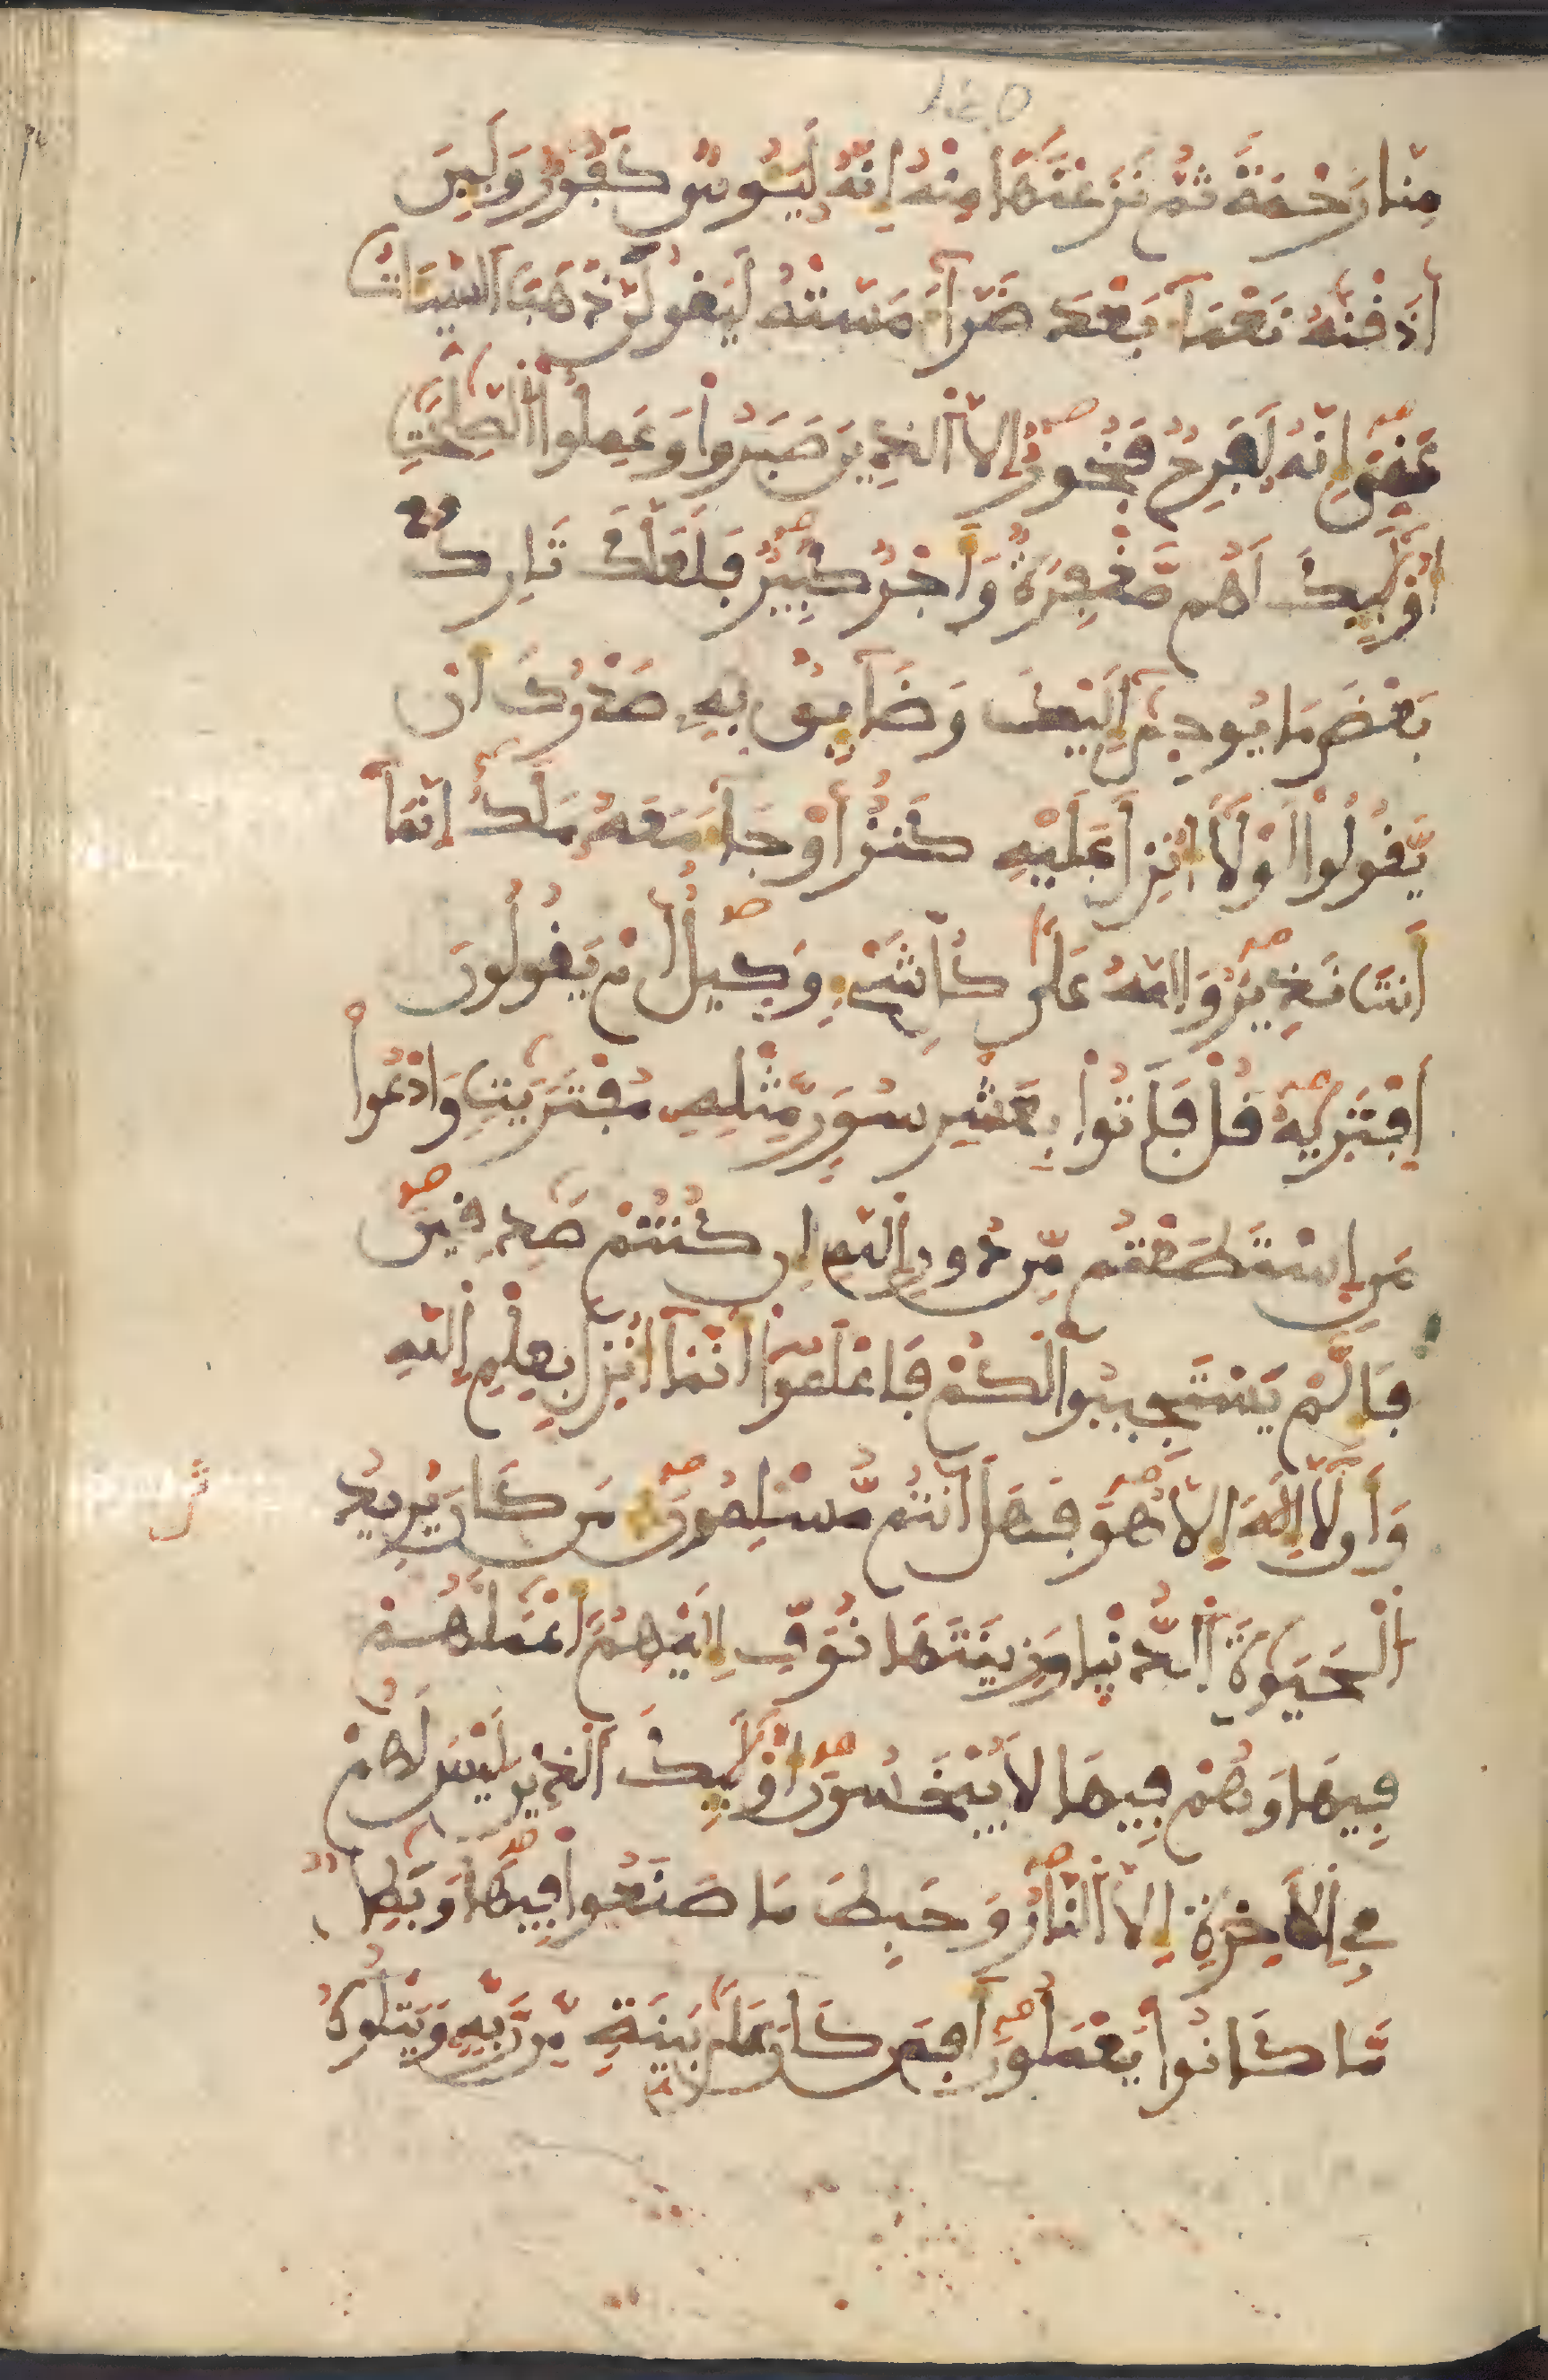 ١٤٥
مِنَّا رَحْمَةً ثُمَّ نَزَعْنَٰهَا مِنْهُ إِنَّهُ لَيَـُٔوسٌ كَفُورٌ وَلَئِنَ
اَذَقْنَٰهُ نَعْمَآءَ بَعْدَ ضَرَّآءَ مَسَّتْهُ لَيَقُولَنَّ ذَهَبَ اَ۬لسَّيِّـَٔاتُ
عَنِّيَ إِنَّهُ لَفَرِحٌ فَخُورٌ إِلَّا اَ۬لذِينَ صَبَرُواْ وَعَمِلُواْ اُ۬لصَّٰلِحَٰتِ
أُوْلَٰٓئِكَ لَهُم مَّغْفِرَةٌ وَأَجْرٌ كَبِيرٌ فَلَعَلَّكَ تَارِكُۢ
بَعْضَ مَا يُوحَىٰٓ إِلَيْكَ وَضَآئِقُۢ بِهِۦ صَدْرُكَ أَنْ
يَّقُولُواْ لَوْلَآ أُنزِلَ عَلَيْهِ كَنزٌ أَوْ جَآءَ مَعَهُۥ مَلَكٌ إِنَّمَآ
أَنتَ نَذِيرٌ وَاللَّهُ عَلَىٰ كُلِّ شَےْءٖ وَكِيلٌ اَمْ يَقُولُونَ
اَ۪فْتَرَىٰهُ قُلْ فَأْتُواْ بِعَشْرِ سُوَرٍ مِّثْلِهِۦ مُفْتَرَيَٰتٍ وَادْعُواْ
مَنِ اِ۪سْتَطَعْتُم مِّن دُونِ اِ۬للَّهِ إِن كُنتُمْ صَٰدِقِينَ
فَإِلَّمْ يَسْتَجِيبُواْ لَكُمْ فَاعْلَمُوٓاْ أَنَّمَآ أُنزِلَ بِعِلْمِ اِ۬للَّهِ
وَأَن لَّآ إِلَٰهَ إِلَّا هُوَ فَهَلَ اَنتُم مُّسْلِمُونَ مَن كَانَ يُرِيدُ
اُ۬لْحَيَوٰةَ اَ۬لدُّنْيَا وَزِينَتَهَا نُوَفِّ إِلَيْهِمُۥٓ أَعْمَٰلَهُمْ
فِيهَا وَهُمْ فِيهَا لَا يُبْخَسُونَ أُوْلَٰٓئِكَ اَ۬لذِينَ لَيْسَ لَهُمْ
فِے اِ۬لَاخِرَةِ إِلَّا اَ۬لنَّارُ وَحَبِطَ مَا صَنَعُواْ فِيهَا وَبَٰطِلٌ
مَّا كَانُواْ يَعْمَلُونَ أَفَمَن كَانَ عَلَىٰ بَيِّنَةٍ مِّن رَّبِّهِۦ وَيَتْلُوهُ